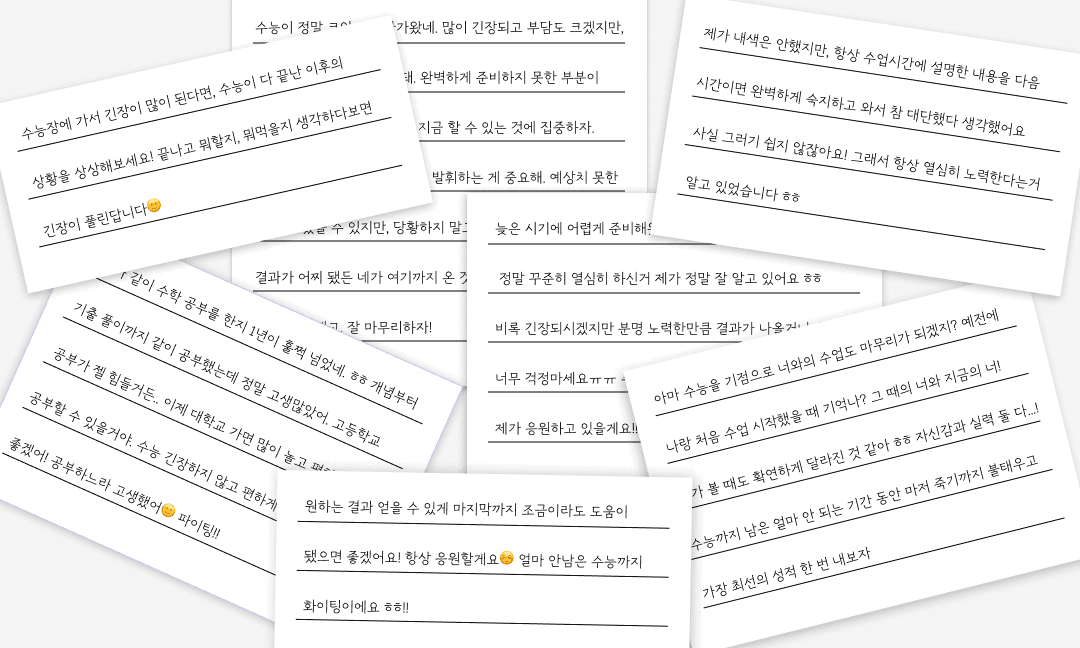 수능이 정말 가왔네. 많이 긴장되고 부담도 크겠지만,
완벽하게 준비하지 못한 부분이
지금 할 수 있는 것에 집중하자.
발휘하는 게 중요해. 예상치 못한
수 있지만, 당황하지 말고
결과가 어찌 됐든 네가 여기까지 온
잘 마무리하자!
수능장에 가서 긴장이 많이 된다면, 수능이 다 끝난 이후의
상황을 상상해보세요! 끝나고 뭐할지, 뭐먹을지 생각하다보면
긴장이 풀린답니다😊
제가 내색은 안했지만, 항상 수업시간에 설명한 내용을 다음
시간이면 완벽하게 숙지하고 와서 참 대단했다 생각했어요
사실 그러기 쉽지 않잖아요! 그래서 항상 열심히 노력한다는거
알고 있었습니다 ㅎㅎ
늦은 시기에 어렵게
정말 꾸준히 열심히 하신거 제가 정말 잘 알고 있어요 ㅎㅎ
비록 긴장되시겠지만 분명 노력한만큼 결과가
너무 걱정마세요ㅠㅠ
제가 응원하고 있을게요!
같이 수학 공부를 한지 1년이 훌쩍 넘었네. ㅎㅎ 개념부터
기출 풀이까지 같이 공부했는데 정말 고생많았어. 고등학교
공부가 젤 힘들거든.. 이제 대학교 가면 많이 놀고
공부할 수 있을거야. 수능 긴장하지 않고 편하게
좋겠어! 공부하느라 고생했어😊 파이팅!!
아마 수능을 기점으로 너와의 수업도 마무리가 되겠지? 예전에
나랑 처음 수업 시작했을 때 기억나? 그 때의 너와 지금의 너!
가 볼 때도 확연하게 달라진 것 같아 ㅎㅎ 자신감과 실력 둘 다...!
수능까지 남은 얼마 안 되는 기간 동안 마저 죽기까지 불태우고
가장 최선의 성적 한 번 내보자
원하는 결과 얻을 수 있게 마지막까지 조금이라도 도움이
됐으면 좋겠어요! 항상 응원할게요😊 얼마 안남은 수능까지
화이팅이에요 ㅎㅎ!!